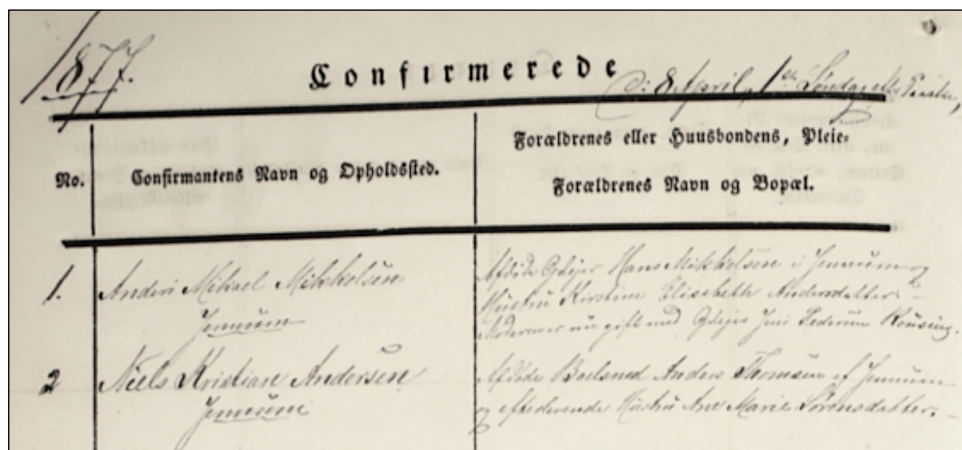 1877.
Confirmerede
D: 8 April, 1ste Søndag efter Paaske,
No.
Confirmantens Navn og Opholdssted.
Forældrenes eller Huusbondens, Pleie-
Forældrenes Navn og Bopæl.
1.
Anders Mikael Mikkelsen
Jennum
Afdøde Gdejer Hans Mikkelsen i Jennum og
Hustru Kirstine Elisebeth Andersdatter. –
Moderen nu gift med Gdejer Jens Pedersen
2
Niels Kristian Andersen
Jennum
Afdøde Boelsmd Anders Thomsen af Jennum
og efterlevende Hustru Ane Marie Sørensdatter. –